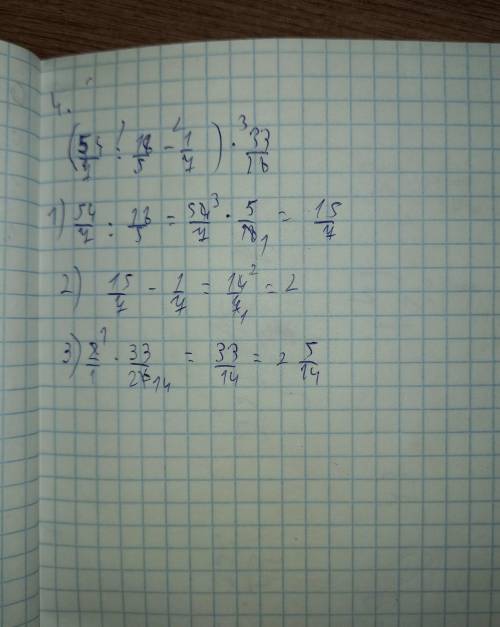 4.
(54/7 : 18/5 - 1/7) · 33/28
1) 54/7 : 18/5 = 54/7 · 5/18 = 15/7
2) 15/7 - 1/7 = 14/7 = 2
3) 2/1 · 33/28 = 33/14 = 2 5/14